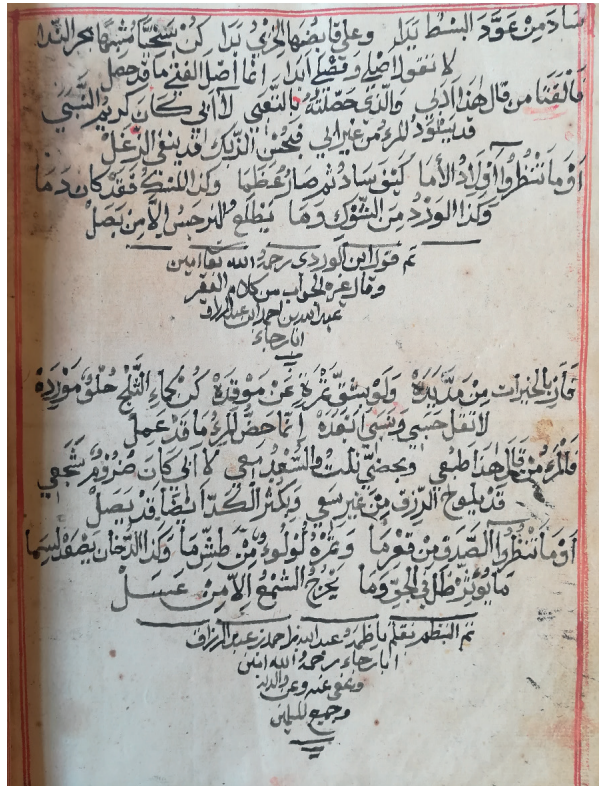 ساد من عود البسط يدا وعلى قابضها الخزي بدا كن سخيا مشبها بحر الندا
لا تقولا اصلي وفصلي ابدا انما اصل الفتى ما قد حصل
فالفتا من قال هذا ادبي والذي حصلته بالتعبي لا ابي كان كريم النسبي
قد يسود المرء من غير ابي فبحسن قد ينفى الزغل
او ما تنظروا اولاد الأما كيف ساد ثم صار عظما وكذا المسك فقد كان دما
وكذا الورد من الشوك وما يطلع النرجس الا من بصل
تم قول ابن الوردي رحمه الله تعا امين
وقال غيره الجواب من كلام الفقير
عبد الله بن احمد ابن عبد الرزاق
ابا رجاء
فاز بالخيرات من مد يده ولو بشق تمرة عن موقده كن كماء الثلج حلو مورده
لا تقل حسبي ونسبي انما المرء ما قد عمل
فالمرء من قال هذا طمعي وبحضي نلت والسعد معي لا ابي كان
قد يلوح الرزق من غير سعي وبكثر الكد ايضا قد يصل
او ما تنظروا الصدق من قعر ما وثمره لولوء من طش ما وكذا الدخان يصعد لسما
ما يوثر ظل في الجو وما يخرج الشمع الا من عسل
تم النظم بقلم ناظمه عبد الله بن احمد بن عبد الرزاق
ابا رجاء رحمه الله امين
وعفى عنه وعن والديه
وجميع المسلمين